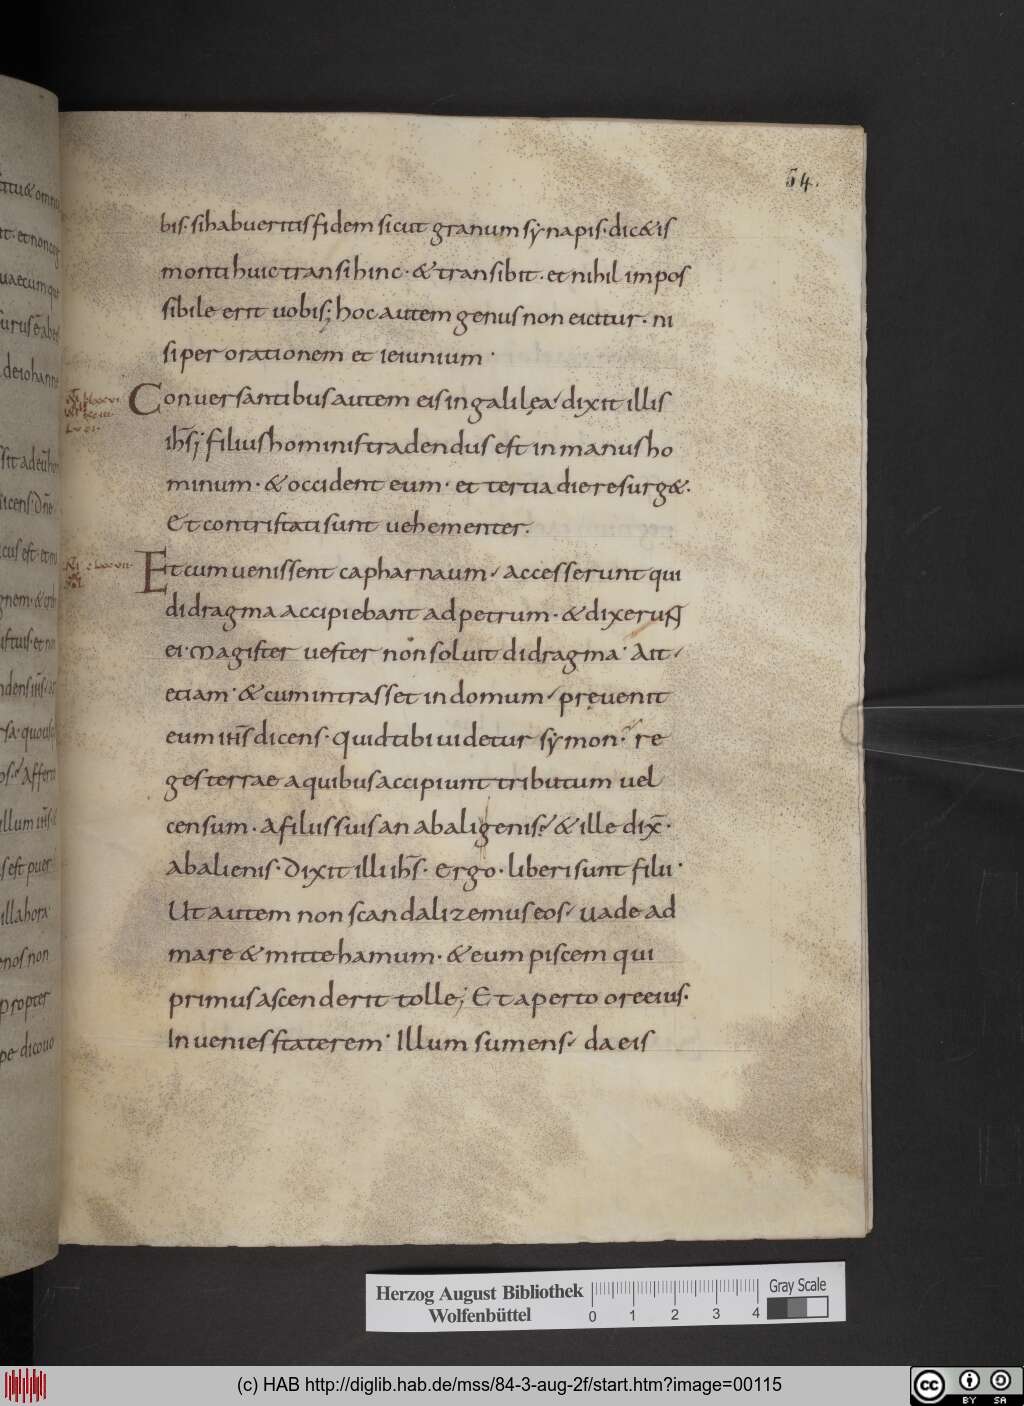 54.
bis. si habueritis fidem sicut granum synapis. dic& is
monti huic transi hinc. & transibit. et nihil impos
sibile erit uobis; hoc autem genus non eicitur. ni
si per orationem et ieiunium.
Conuersantibus autem eis in galilęa dixit illis
ih̅s; filius hominis tradendus est in manus ho
minum. & occident eum. et tertia die resurg&.
Et contristati sunt uehementer.
Et cum uenissent capharnaum, accesserunt qui
didragma accipiebant ad petrum. & dixerunt
ei. Magister uester non soluit didragma. Ait,
etiam. & cum intrasset in domum, pręuenit
eum ih̅s dicens. Quid tibi uidetur symon. re
ges terrae a quibus accipiunt tributum uel
censum. a filiis suis an ab aligenis? & ille dix̅.
ab alienis. Dixit illi ih̅s. Ergo. liberi sunt filii.
Ut autem non scandalizemus eos, uade ad
mare & mitte hamum. & eum piscem qui
primus ascenderit tolle; Et aperto ore eius.
Inuenies staterem. Illum sumens, da eis
Herzog August Bibliothek
Wolfenbüttel
0 1 2 3 4
Gray Scale
(c) HAB http://diglib.hab.de/mss/84-3-aug-2f/start.htm?image=00115
cc BY SA